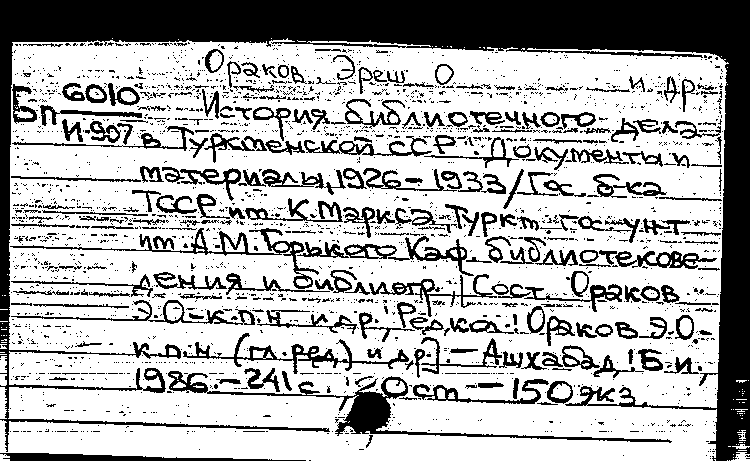 Ораков, Эреш О и др.
Бп 6010
И-907
История библиотечного дела
в Туркменской ССР: Документы и
материалы, 1926-1933/Гос. б-ка
ТССР им. К.Маркса, Туркм. гос ун-т
им. А.М.Горького Каф. библиотекове-
дения и библиогр.; [Сост. Ораков
Э.О-к.п.н. и др.; Редкол.: Ораков Э.О.-
к.п.н. (гл.ред.) и др.]. — Ашхабад: Б.и.,
1986.-241с. 20 см. — 150 экз.